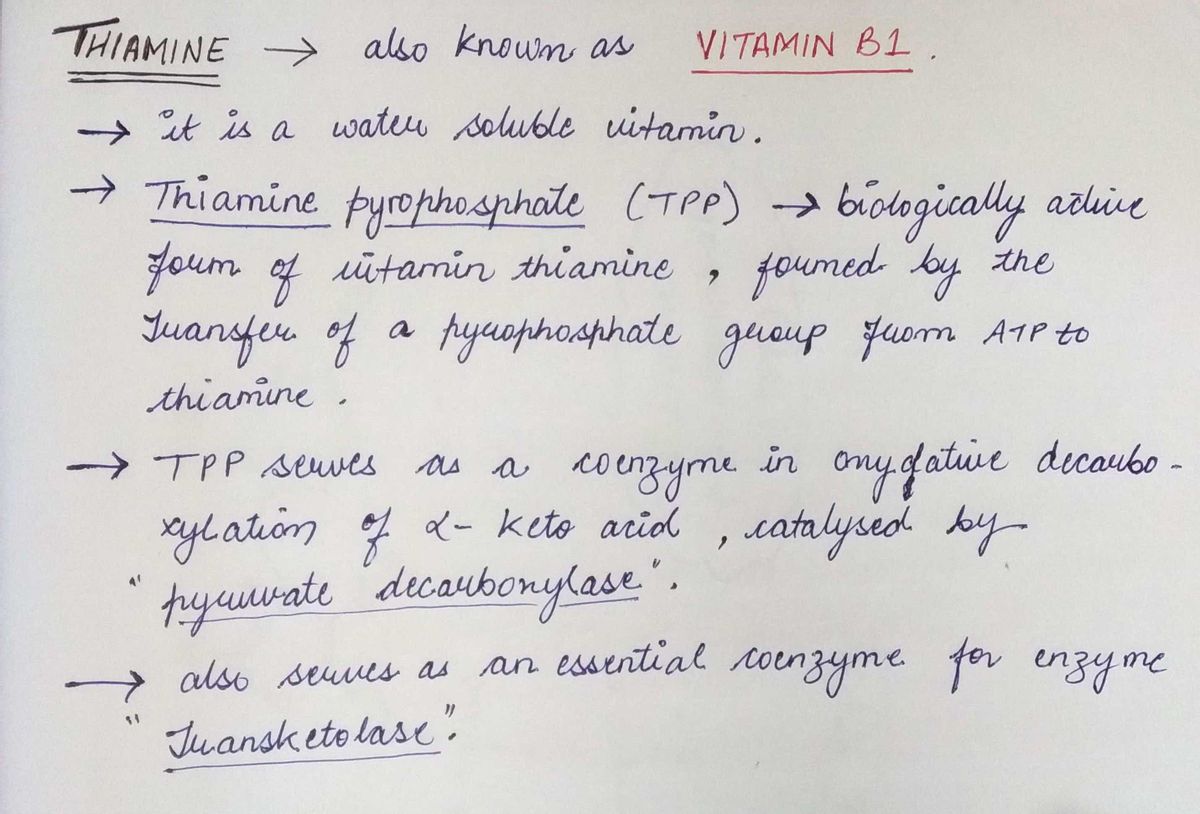 THIAMINE → also known as VITAMIN B1.
→ it is a water soluble vitamin.
→ Thiamine pyrophosphate (TPP) → biologically active
form of vitamin thiamine, formed by the
Transfer of a pyrophosphate group from ATP to
thiamine.
→ TPP serves as a coenzyme in oxydative decarbo-
xylation of α- keto acid, catalysed by
"pyruvate decarboxylase".
→ also serves as an essential coenzyme for enzyme
"Transketolase".